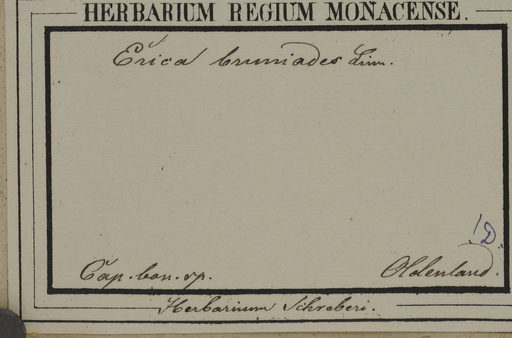 HERBARIUM REGIUM MONACENSE.
Erica bruniades Linn.
!D.
Cap. bon. sp.
Oldenland.
Herbarium Schreberi.